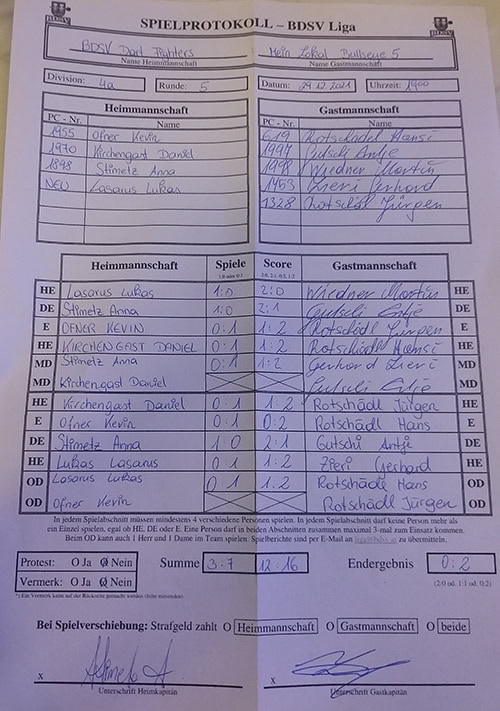 SPIELPROTOKOLL – BDSV Liga
BDSV Dart Fighters Mein Lokal Bullseye 5
Name Heimmannschaft Name Gastmannschaft
Division: 4a Runde: 5 Datum: 29.12.2021 Uhrzeit: 1900
Heimmannschaft Gastmannschaft
PC - Nr. Name PC - Nr. Name
1955 Ofner Kevin 619 Rotschädl Hansi
1970 Kirchengast Daniel 1997 Gutschi Antje
1898 Stimetz Anna 1998 Wiedner Martin
NEU Lasarus Lukas 1453 Zieri Gerhard
1328 Rotschädl Jürgen
Heimmannschaft Spiele Score Gastmannschaft
1:0 oder 0:1 2:0, 2:1, 0:2, 1:2
HE Lasarus Lukas 1:0 2:0 Wiedner Martin HE
DE Stimetz Anna 1:0 2:1 Gutschi Antje DE
E OFNER KEVIN 0:1 1:2 Rotschädl Jürgen E
HE KIRCHENGAST DANIEL 0:1 1:2 Rotschädl Hansi HE
MD Stimetz Anna 0:1 1:2 Gerhard Zieri MD
MD Kirchengast Daniel Gutschi Antje MD
HE Kirchengast Daniel 0:1 1:2 Rotschädl Jürgen HE
E Ofner Kevin 0:1 0:2 Rotschädl Hans E
DE Stimetz Anna 1:0 2:1 Gutschi Antje DE
HE Lukas Lasarus 0:1 1:2 Zieri Gerhard HE
OD Lasarus Lukas 0 1 1:2 Rotschädl Hans OD
OD Ofner Kevin Rotschädl Jürgen OD
In jedem Spielabschnitt müssen mindestens 4 verschiedene Personen spielen. In jedem Spielabschnitt darf keine Person mehr als
ein Einzel spielen, egal ob HE, DE oder E. Eine Person darf in beiden Abschnitten zusammen maximal 3-mal zum Einsatz kommen.
Beim OD kann auch 1 Herr und 1 Dame im Team spielen. Spielberichte sind per E-Mail an zu übermitteln.
Protest: O Ja O Nein Summe 3:7 12:16 Endergebnis 0:2
Vermerk: O Ja O Nein (2:0 od. 1:1 od. 0:2)
Bei Spielverschiebung: Strafgeld zahlt O Heimmannschaft O Gastmannschaft O beide
x x
Unterschrift Heimkapitän Unterschrift Gastkapitän